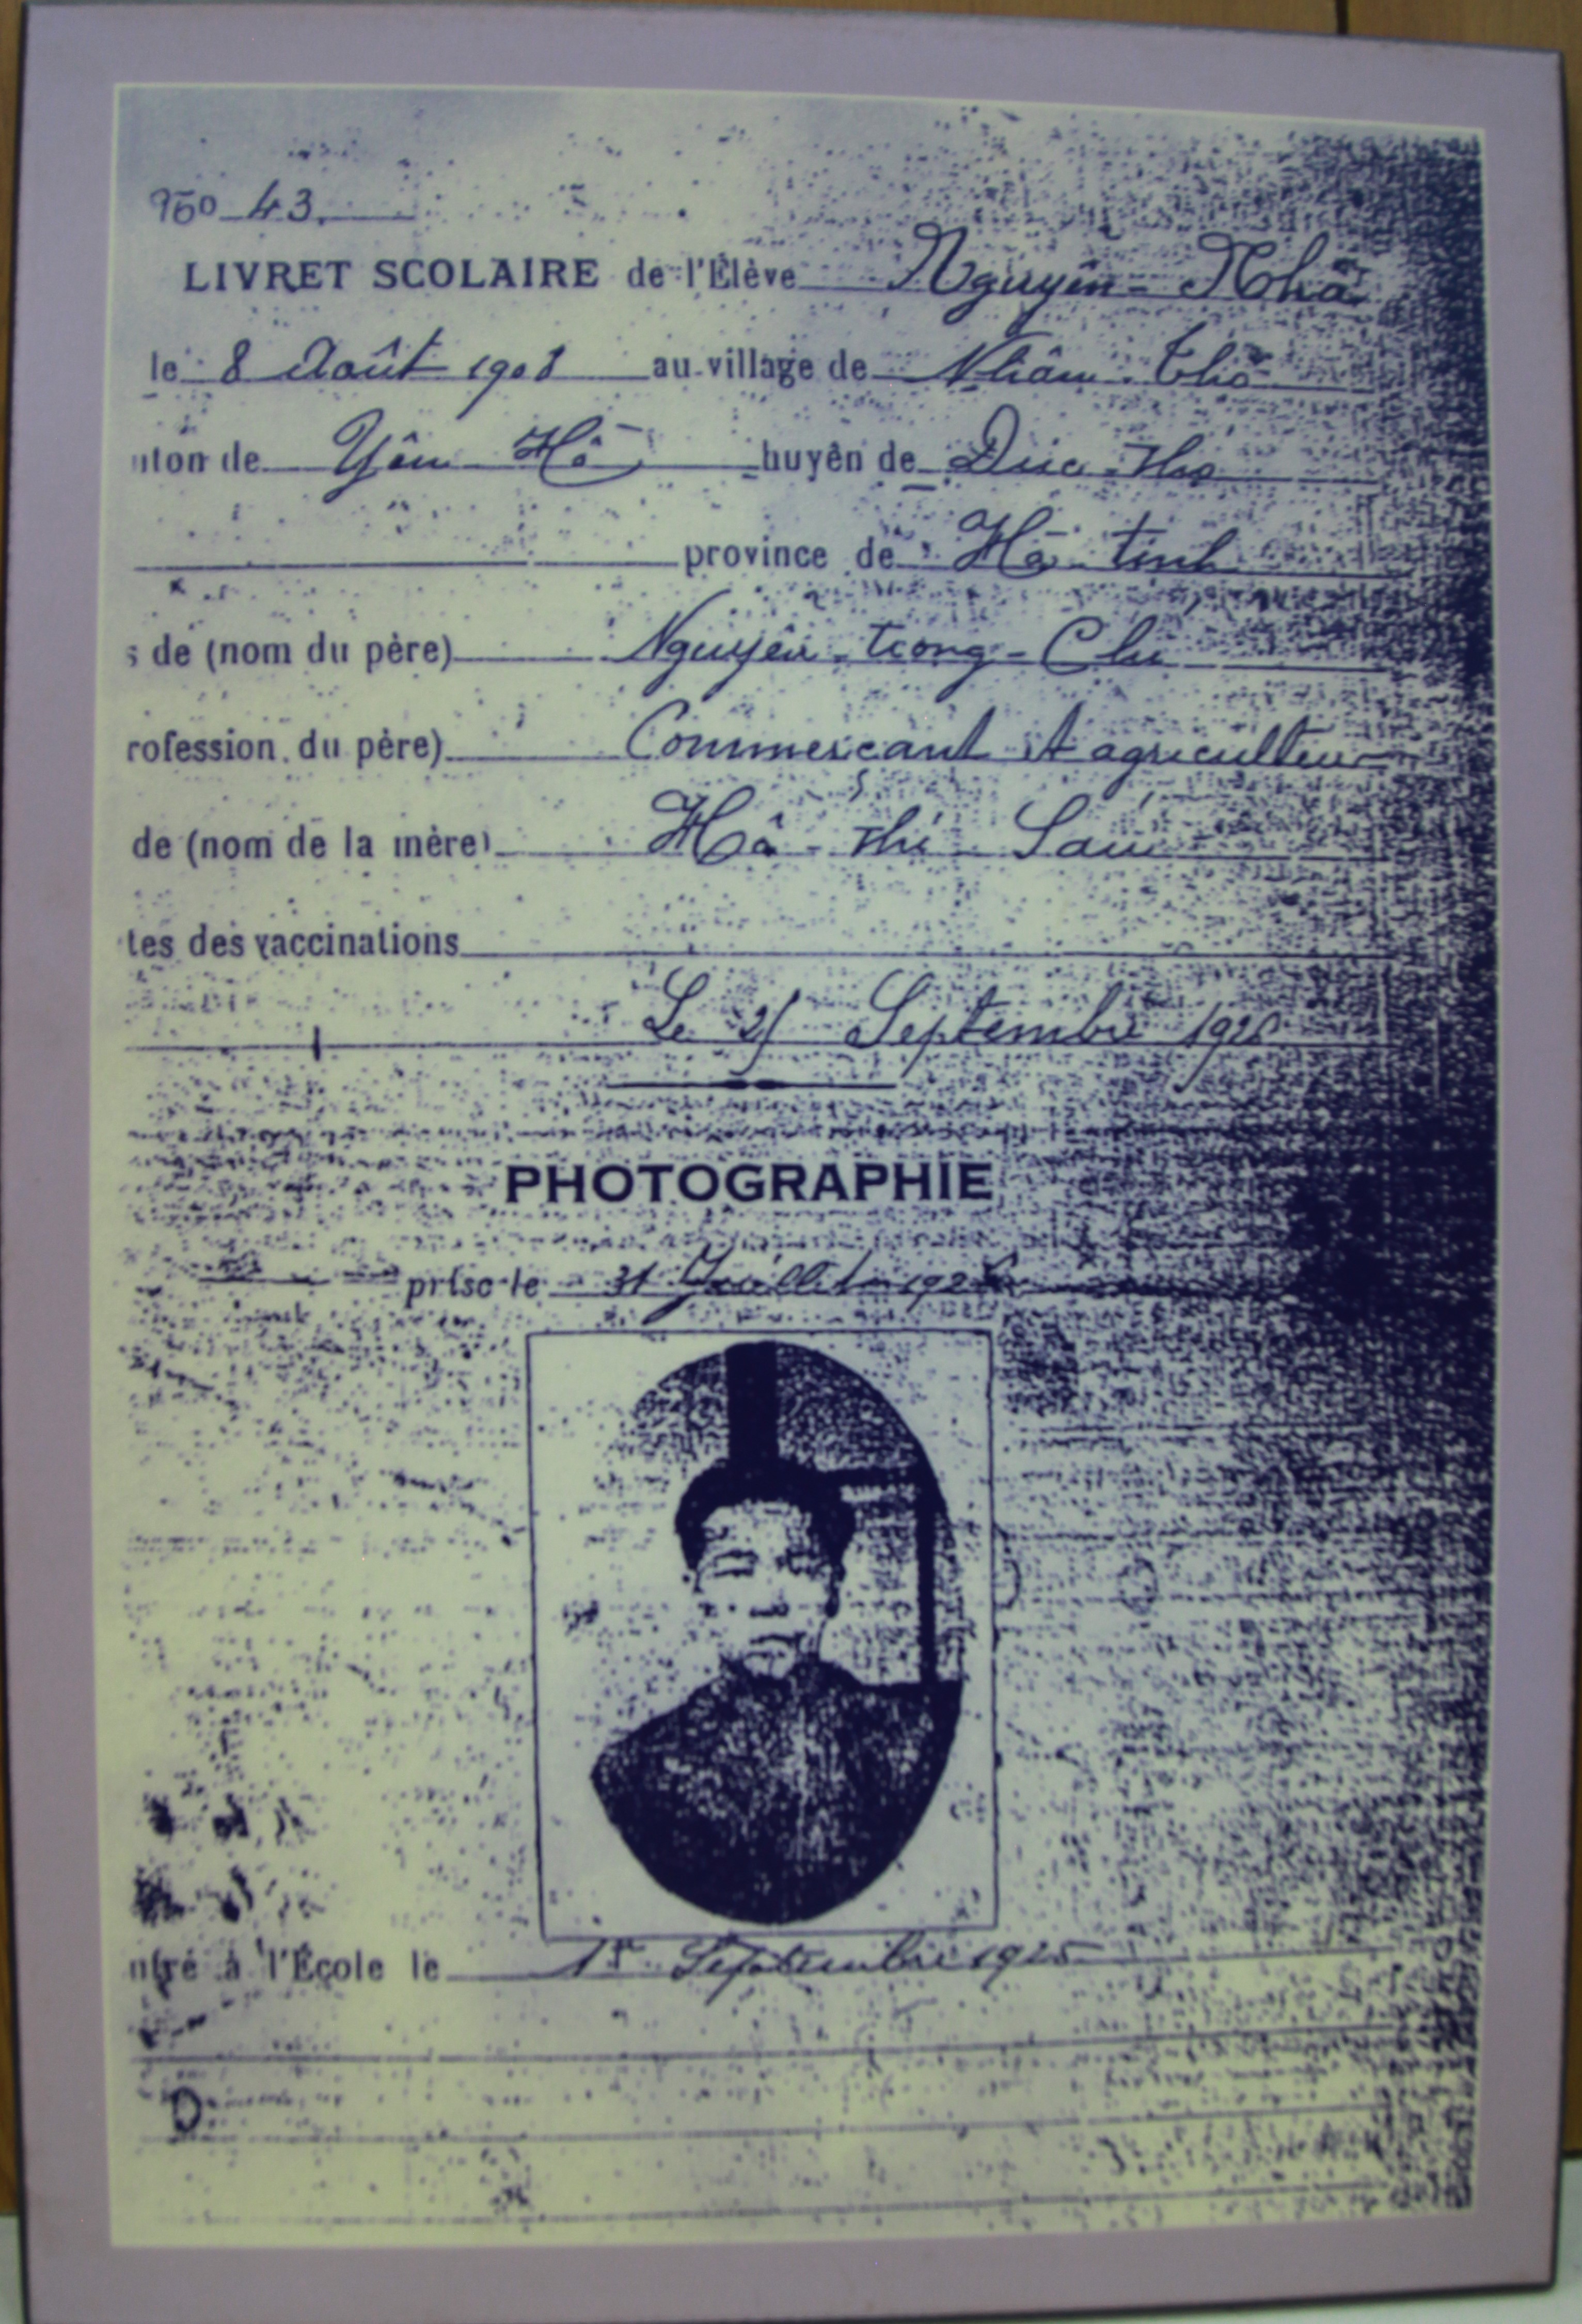 No 43.
LIVRET SCOLAIRE de l'Élève Nguyên-Khoa
le 8 Août 1908 au village de Nhân-Thô
nton de Yên Hô huyên de Duc-Tho
province de Hà-tinh
s de (nom du père) Nguyên-trong-Chu
rofession du père) Commerçant et agriculteur
de (nom de la mère) Hô-thi-Sam
tes des vaccinations
Le Septembre
PHOTOGRAPHIE
prise le 31 Juillet
ntré à l'École le 1er Septembre 1925